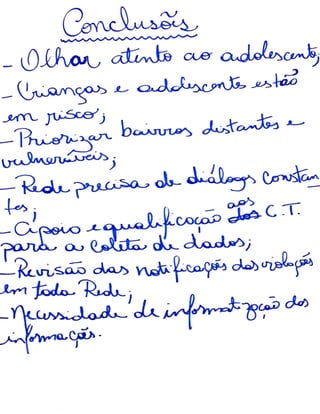 Conclusões
- Olhar atento ao adolescente;
- Crianças e adolescentes estão
em risco;
- Priorizar bairros distantes e
vulneráveis;
- Rede precisa de diálogos constan
tes;
- Apoio e qualificação aos C.T.
para a coleta de dados;
- Revisão das notificações das violações
em toda Rede;
- Necessidade de informatização das
informações.